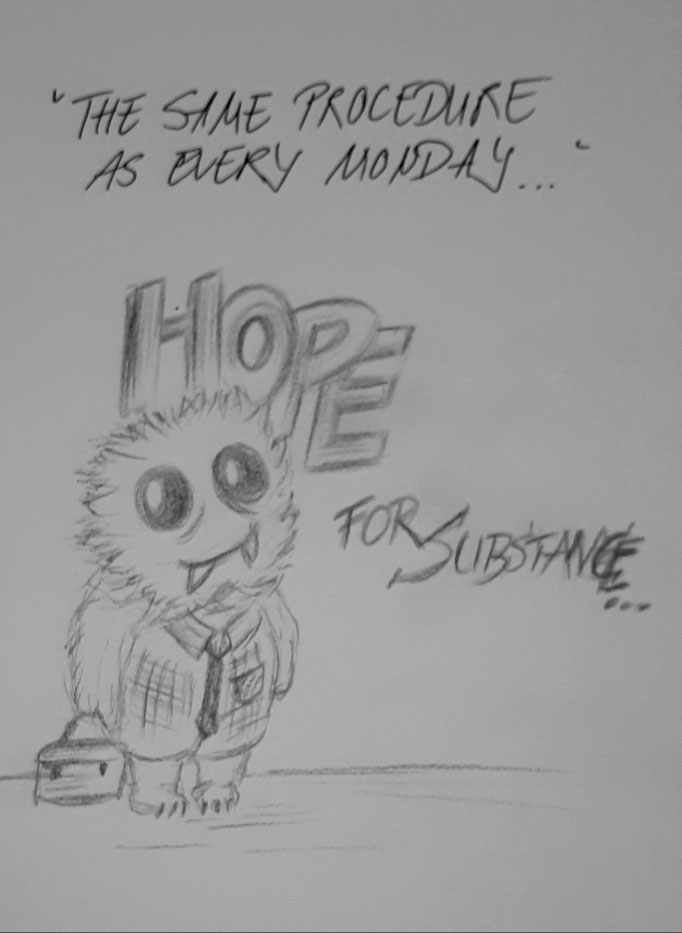 "THE SAME PROCEDURE
AS EVERY MONDAY..."
HOPE
FOR SUBSTANCE...